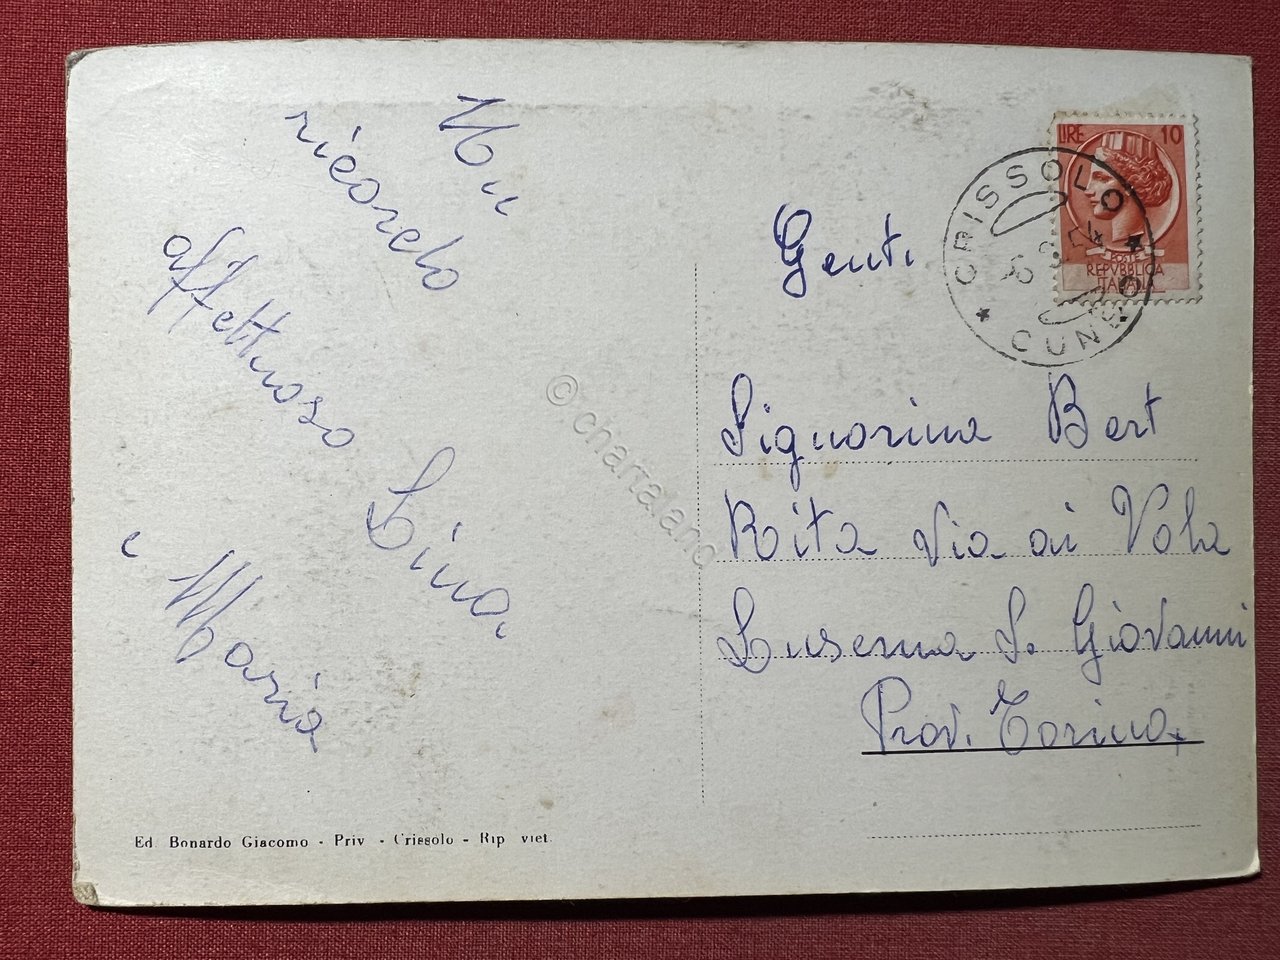 Un
ricordo
affettuoso
Lina.
e Maria
Ed. Bonardo Giacomo - Priv - Crissolo - Rip viet.
LIRE 10
POSTE
REPVBBLICA
ITALIANA
CRISSOLO
CUNEO
Gent.
Signorina Bert
Rita Via ai Vola
Luserna S. Giovanni
Prov. Torino
© chartaland